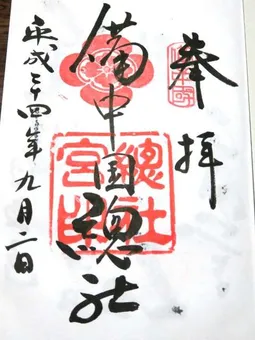 奉拝
備中国總社
總社
宮印
平成二十四年九月二日